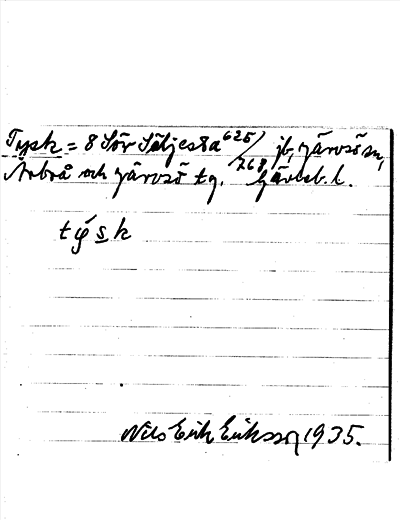 Tysk = 8 Sör Söljesta 625/768 jb, Järvsö sn,
Arbrå och Järvsö tg. Gävleb. l.
týsk
Nils Erik Eriksson 1935.